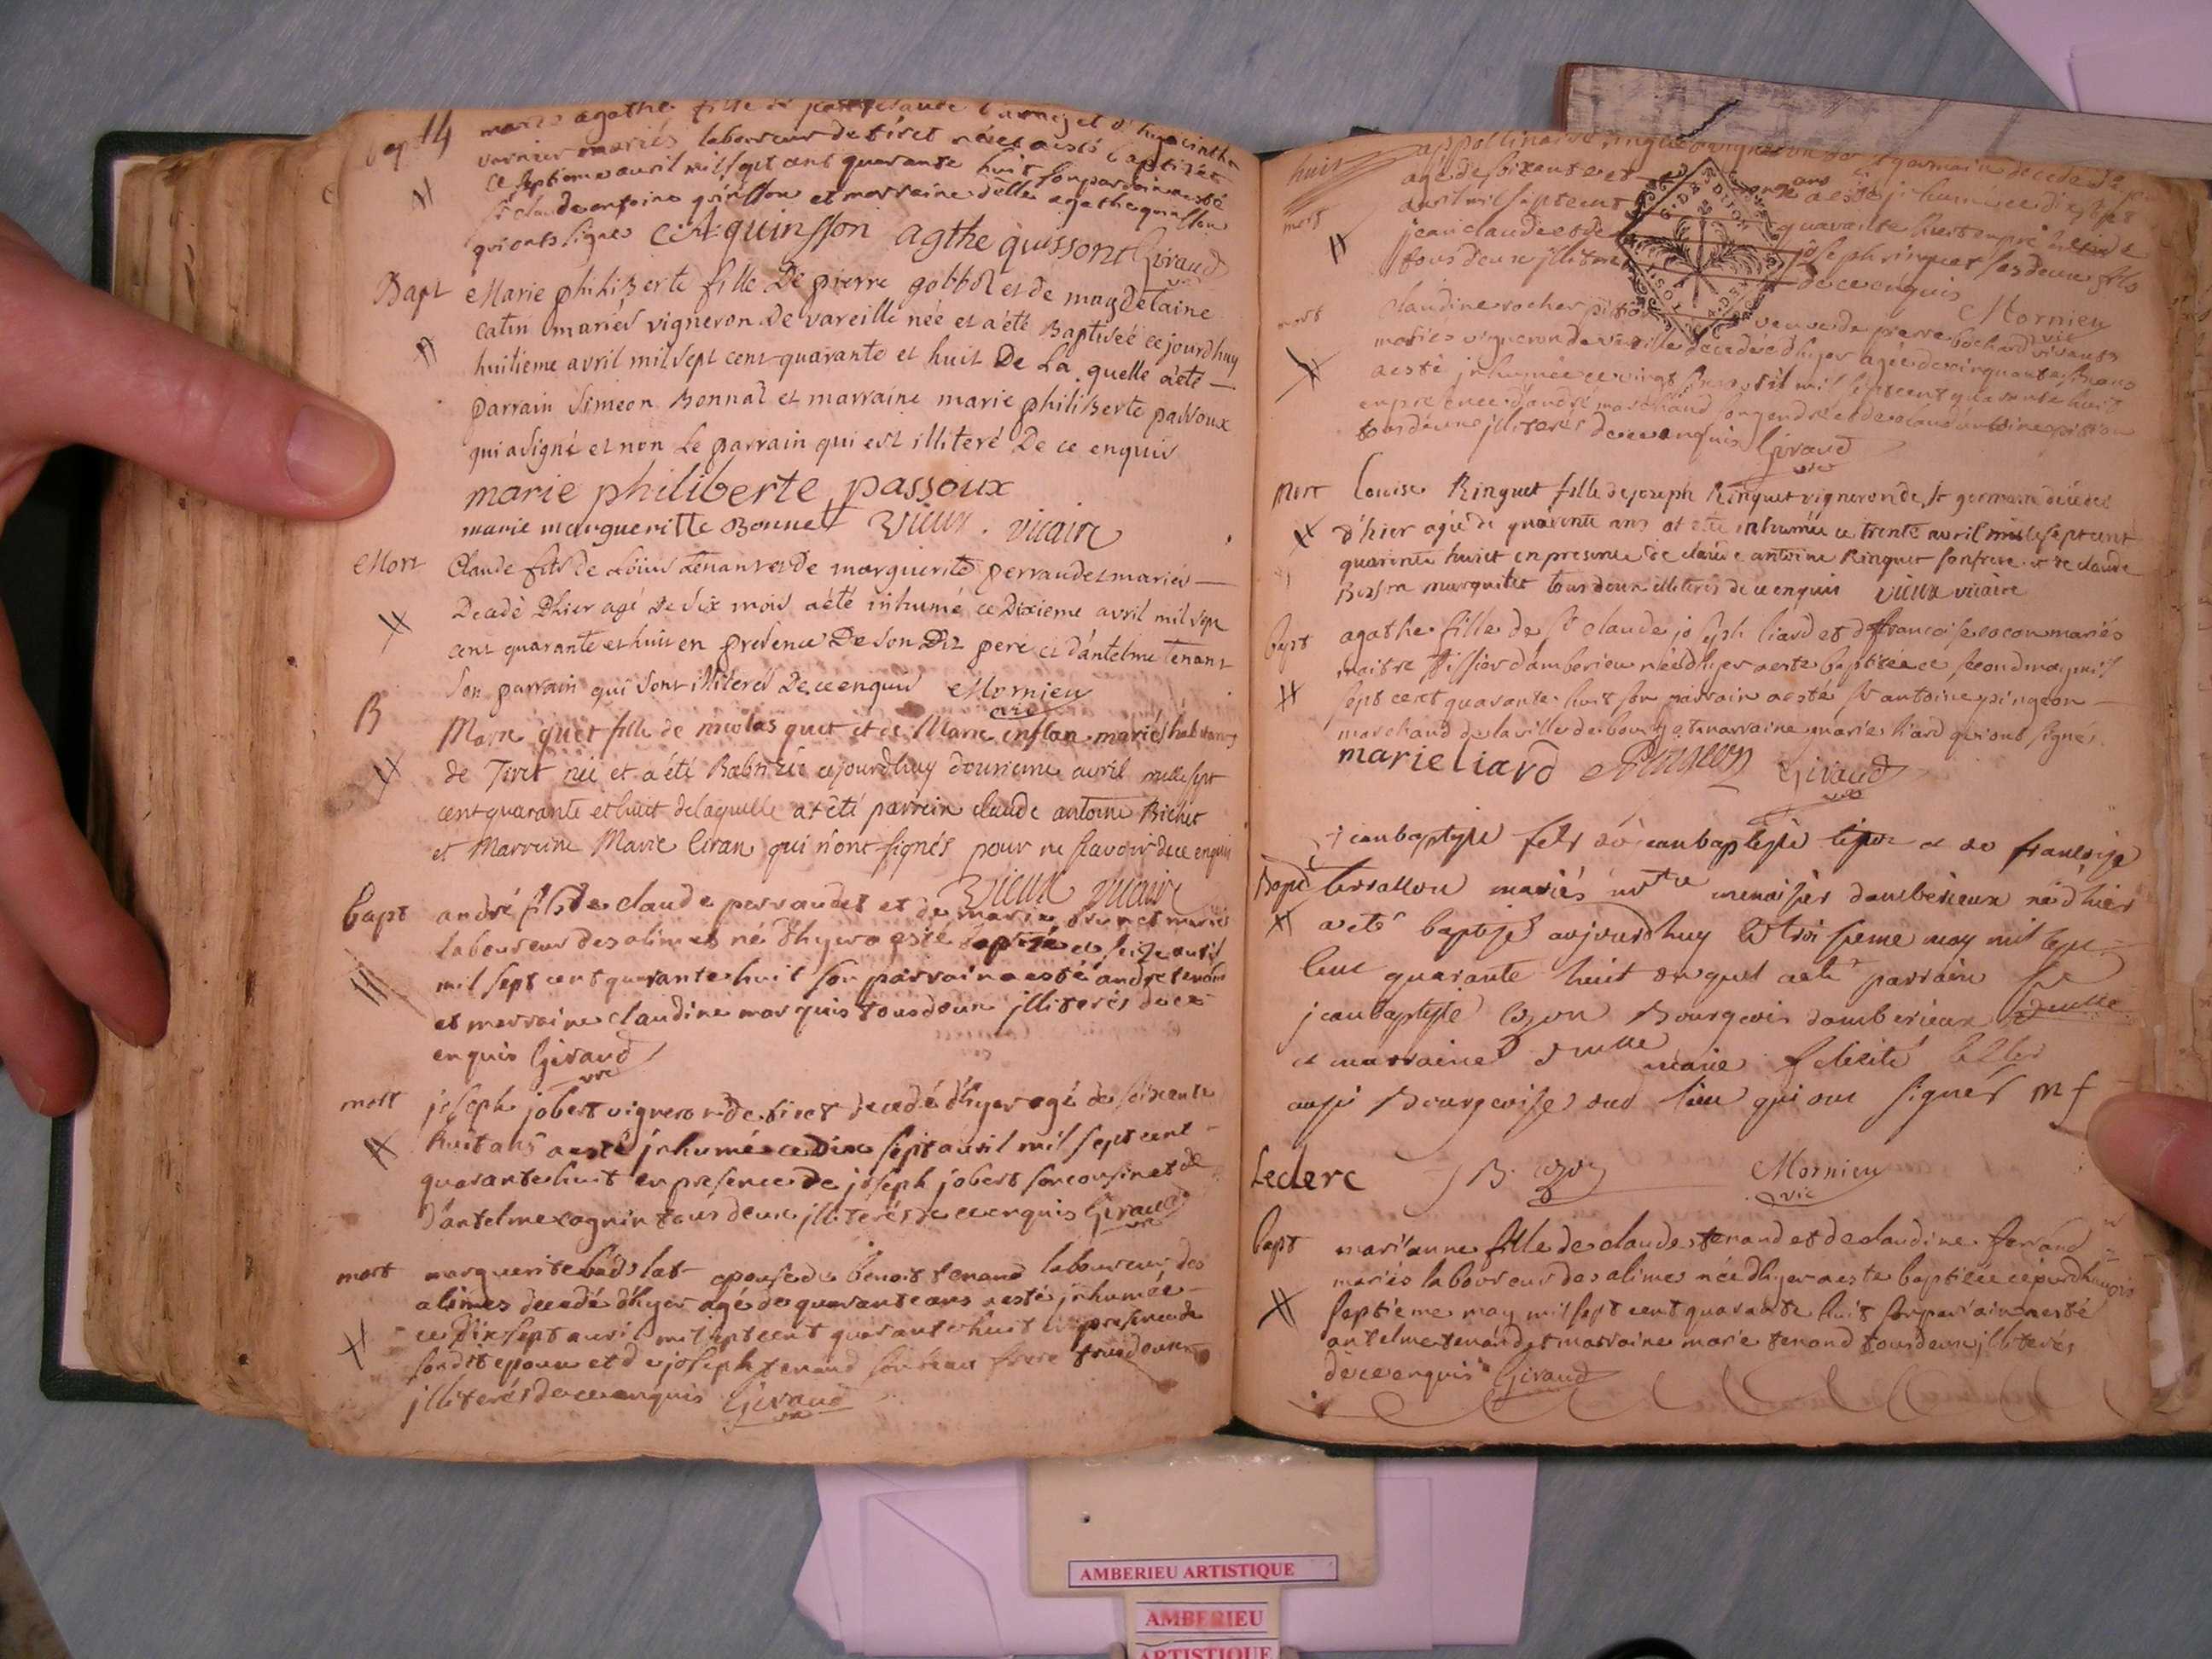 Bapt 14 marie agathe fille de et d'hyacinthe
vernier mariés laboureur de tiret née et a esté baptisée
ce septieme avril mil sept cent quarante huit son parrain a esté
Sr claude antoine quinsson et marraine delle agathe quinsson
qui ont signés C:A:quinsson agthe quissont Giraud
vre
Bapt Marie philiberte fille De pierre gobbot et de magdelaine
catin mariés vigneron De vareille née et a été Baptisée ce jourdhuy
huitieme avril mil sept cent quarante et huit De La quelle a été
parrain Simeon Bonnat et marraine marie philiberte passoux
qui a signé et non Le parrain qui est illiteré De ce enquis
marie philiberte passoux
marie margueritte Bonnet Vieux . vicaire
Mort Claude fils de Loüis tenant et De marguerite perraudet mariés
Decedé Dhier agé De Six mois a été inhumé ce Dixieme avril mil sept
cent quarante et huit en presence De Son Dit pere et d'antelme tenant
Son parrain qui sont illiterés De ce enquis Mornieu
vic
B Marie quet fille de nicolas quet et de Marie mariés habitants
de Tiret née et a été Babtisée cejourdhuy douzieme avril mille sept
cent quarante et huit de laquelle at été parrein claude antoine Bichet
et Marreine Marie Ciran qui n'ont signés pour ne scavoir de ce enquis
Vieux vicaire
bapt andré fils de claude perraudet et de marie brunet mariés
laboureur des alimes né d'hyer a esté baptisé ce seize avril
mil sept cent quarante huit son parrain a esté andré tenand
et marraine claudine marquis tous deux illiterés de ce
enquis Giraud
vre
mort joseph jobert vigneron de tiret decedé d'hyer agé de soixante
huit ans a esté inhumé ce dix sept avril mil sept cent
quarante huit en presence de joseph jobert son cousin et de
d'antelme cagnin tous deux illiterés de ce enquis Giraud
vre
mort marguerite epouse de benoit tenand laboureur des
alimes decedé d'hyer agé de quarante ans a esté inhumée
ce dix sept avril mil sept cent quarante huit en presence de
son dit epoux et de joseph tenand son beau frere tous deux
illiterés de ce enquis Giraud
vre
huit appollinaire vigneron de St germain decedé
mort agé de soixante et onze ans a esté inhumé ce
avril mil sept cent quarante huit en presence de
jean claude et de joseph ringuet ses deux fils
tous deux illiterés de ce enquis Mornieu
vic
mort claudine rocher veuve de pierre bochard vivants
mariés vigneron de vareille decedée d'hyer agée de cinquante ans
a esté inhumée ce vingt avril mil sept cent quarante huit
en presence d'andré marchand son gendre et de claud antoine
tous deux illiterés de ce enquis Giraud
vre
mort Louise Ringuet fille de joseph Ringuet vigneron de St germain decedée
d'hier agée de quarente ans at été inhumée ce trente avril mille sept cent
quarente huict en presence de claude antoine Ringuet son frere et de claude
tous deux illiterés de ce enquis vieux vicaire
bapt agathe fille de Sr claude joseph liard et de francoise cocon mariés
maitre d'amberieu née d'hyer a esté baptisée ce second may mil
sept cent quarante huit son parrain a esté Sr antoine pingeon
marchand de la ville de bourg et marraine marie liard qui ont signés
marie liard Pingeon Giraud
vre
jean baptiste fils de jean baptiste et de françoise
Bapt terrallon mariés mtre menuisier damberieux né d'hier
a eté baptisé aujourdhuy Le troisieme may mil sept
cent quarante huit duquel a eté parrain Sr
jean baptiste Bourgeois damberieux
et marraine dmelle marie felicité
aussi Bourgeoise dud lieu qui ont signés m f
Leclerc J B Mornieu
vic
bapt mari'anne fille de claude tenand et de claudine ferrand
mariés laboureur des alimes née d'hyer a esté baptisée ce jourdhuy
septieme may mil sept cent quarante huit son parrain a esté
antelme tenand et marraine marie tenand tous deux illiterés
de ce enquis Giraud
AMBERIEU ARTISTIQUE
AMBERIEU
ARTISTIQUE